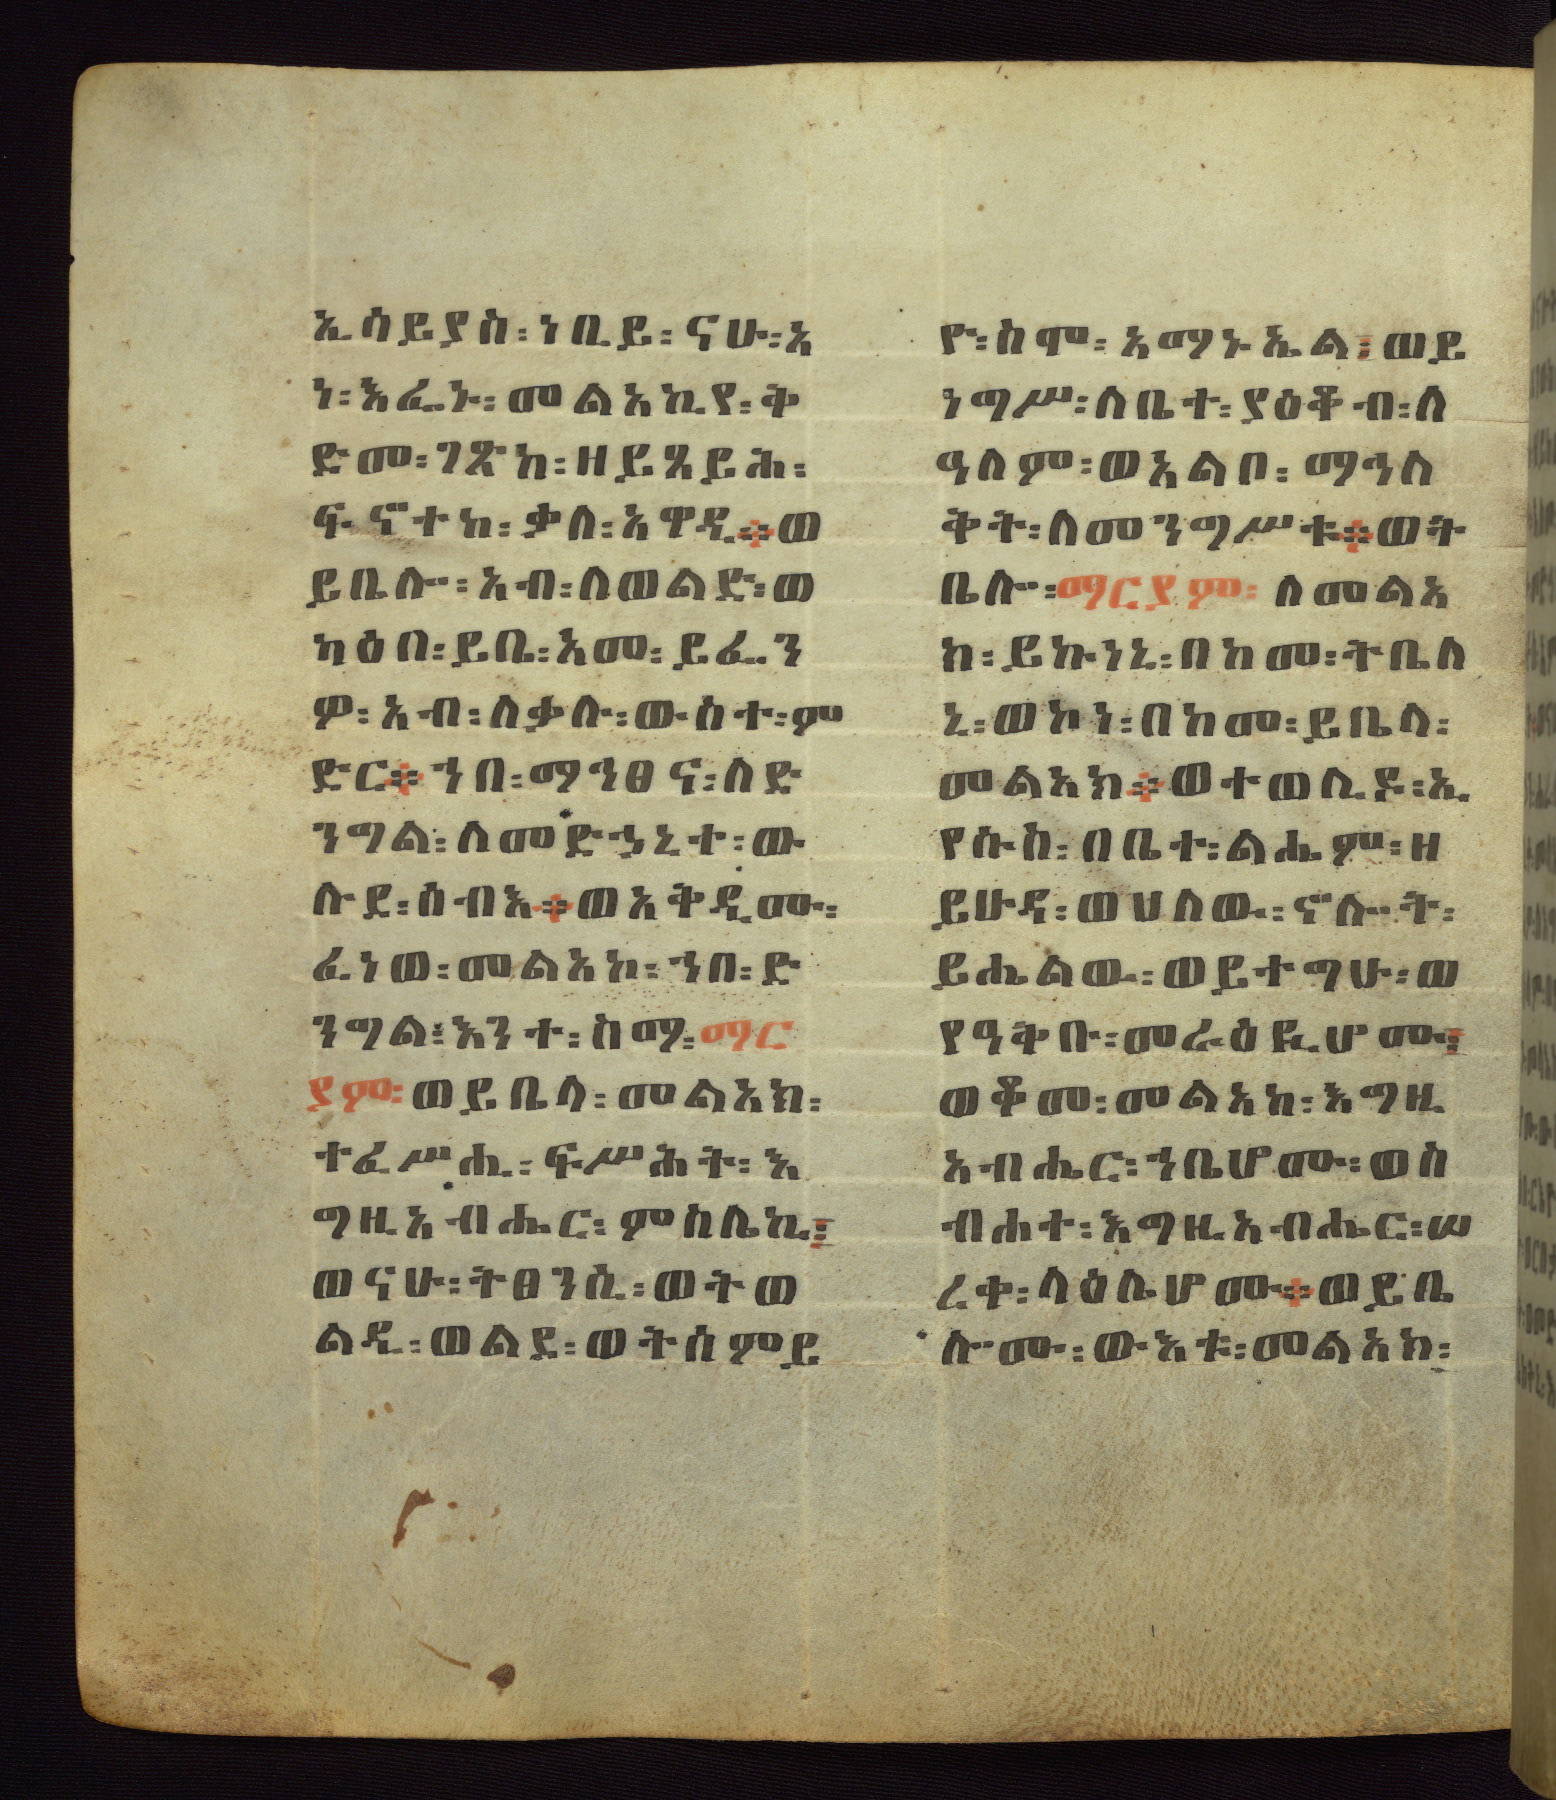 ኢሳይያስ፡ነቢይ፡ናሁ፡አ
ነ፡እፌኑ፡መልአኪየ፡ቅ
ድመ፡ገጽከ፡ዘይጸይሕ፡
ፍኖተከ፡ቃለ፡አዋዲ፨ወ
ይቤሎ፡አብ፡ለወልድ፡ወ
ካዕበ፡ይቤ፡አመ፡ይፌን
ዎ፡አብ፡ለቃሉ፡ውስተ፡ም
ድር፨ኀበ፡ማኅፀና፡ለድ
ንግል፡ለመድኃኒተ፡ው
ሉደ፡ሰብእ፨ወአቅዲሙ፡
ፈነወ፡መልአኮ፡ኀበ፡ድ
ንግል፡እንተ፡ስማ፡ማር
ያም፡ወይቤላ፡መልአክ፡
ተፈሥሒ፡ፍሥሕት፡እ
ግዚአብሔር፡ምስሌኪ፡
ወናሁ፡ትፀንሲ፡ወትወ
ልዲ፡ወልደ፡ወትሰምይ
ዮ፡ስሞ፡አማኑኤል፡ወይ
ነግሥ፡ለቤተ፡ያዕቆብ፡ለ
ዓለም፡ወአልቦ፡ማኅለ
ቅት፡ለመንግሥቱ፨ወት
ቤሎ፡ማርያም፡ለመልአ
ክ፡ይኩነኒ፡በከመ፡ትቤለ
ኒ፡ወኮነ፡በከመ፡ይቤላ፡
መልአክ፨ወተወሊዶ፡ኢ
የሱስ፡በቤተ፡ልሔም፡ዘ
ይሁዳ፡ወሀለው፡ኖሎት፡
ይሔልው፡ወይተግሁ፡ወ
የዓቅቡ፡መራዕዪሆሙ፡
ወቆመ፡መልአከ፡እግዚ
አብሔር፡ኀቤሆሙ፡ወስ
ብሐተ፡እግዚአብሔር፡ሠ
ረቀ፡ላዕሌሆሙ፨ወይቤ
ሎሙ፡ውእቱ፡መልአክ፡